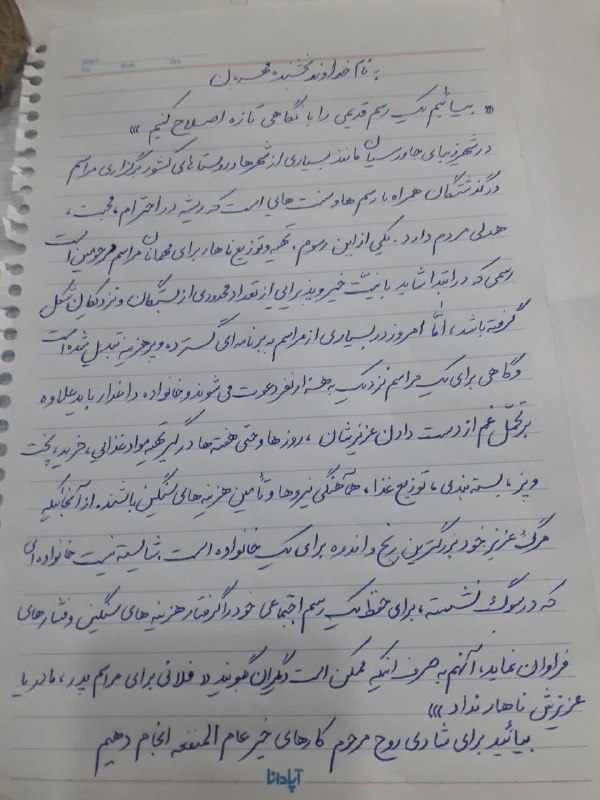 به نام خداوند بخشنده مهربان
« بیائیم یک رسم قدیمی را با نگاهی تازه اصلاح کنیم »
در شهر زیبای جاورسیان مانند بسیاری از شهرها و روستاهای کشور برگزاری مراسم
درگذشتگان همراه با رسم ها و سنت هایی است که ریشه در احترام، محبت،
همدلی مردم دارد. یکی از این رسوم، تهیه و توزیع ناهار برای مهمانان مراسم مرحومین است
رسمی که در ابتدا شاید با نیّت خیر و پذیرایی از تعداد محدودی از بستگان و نزدیکان شکل
گرفته باشد، امّا امروز در بسیاری از مراسم به برنامه ای گسترده و پرهزینه تبدیل شده است
و گاهی برای یک مراسم نزدیک به هزار نفر دعوت می شوند و خانواده داغدار باید علاوه
بر تحمّل غم از دست دادن عزیزشان، روزها و حتی هفته ها درگیر تهیه مواد غذایی، خرید، پخت
و پز، بسته بندی، توزیع غذا، هماهنگی نیروها و تأمین هزینه های سنگین باشند. از آنجائیکه
مرگ عزیز بخود بزرگترین رنج و اندوه برای یک خانواده است شایسته نیست خانواده ای
که در سوگ نشسته، برای حفظ یک رسم اجتماعی خود را گرفتار هزینه های سنگین و فشارهای
فراوان نماید، آنهم به صرف اینکه ممکن است دیگران بگویند « فلانی برای مراسم پدر، مادر یا
عزیزش ناهار نداد »
بیائید برای شادی روح مرحوم کارهای خیر عام المنفعه انجام دهیم
آپادانا